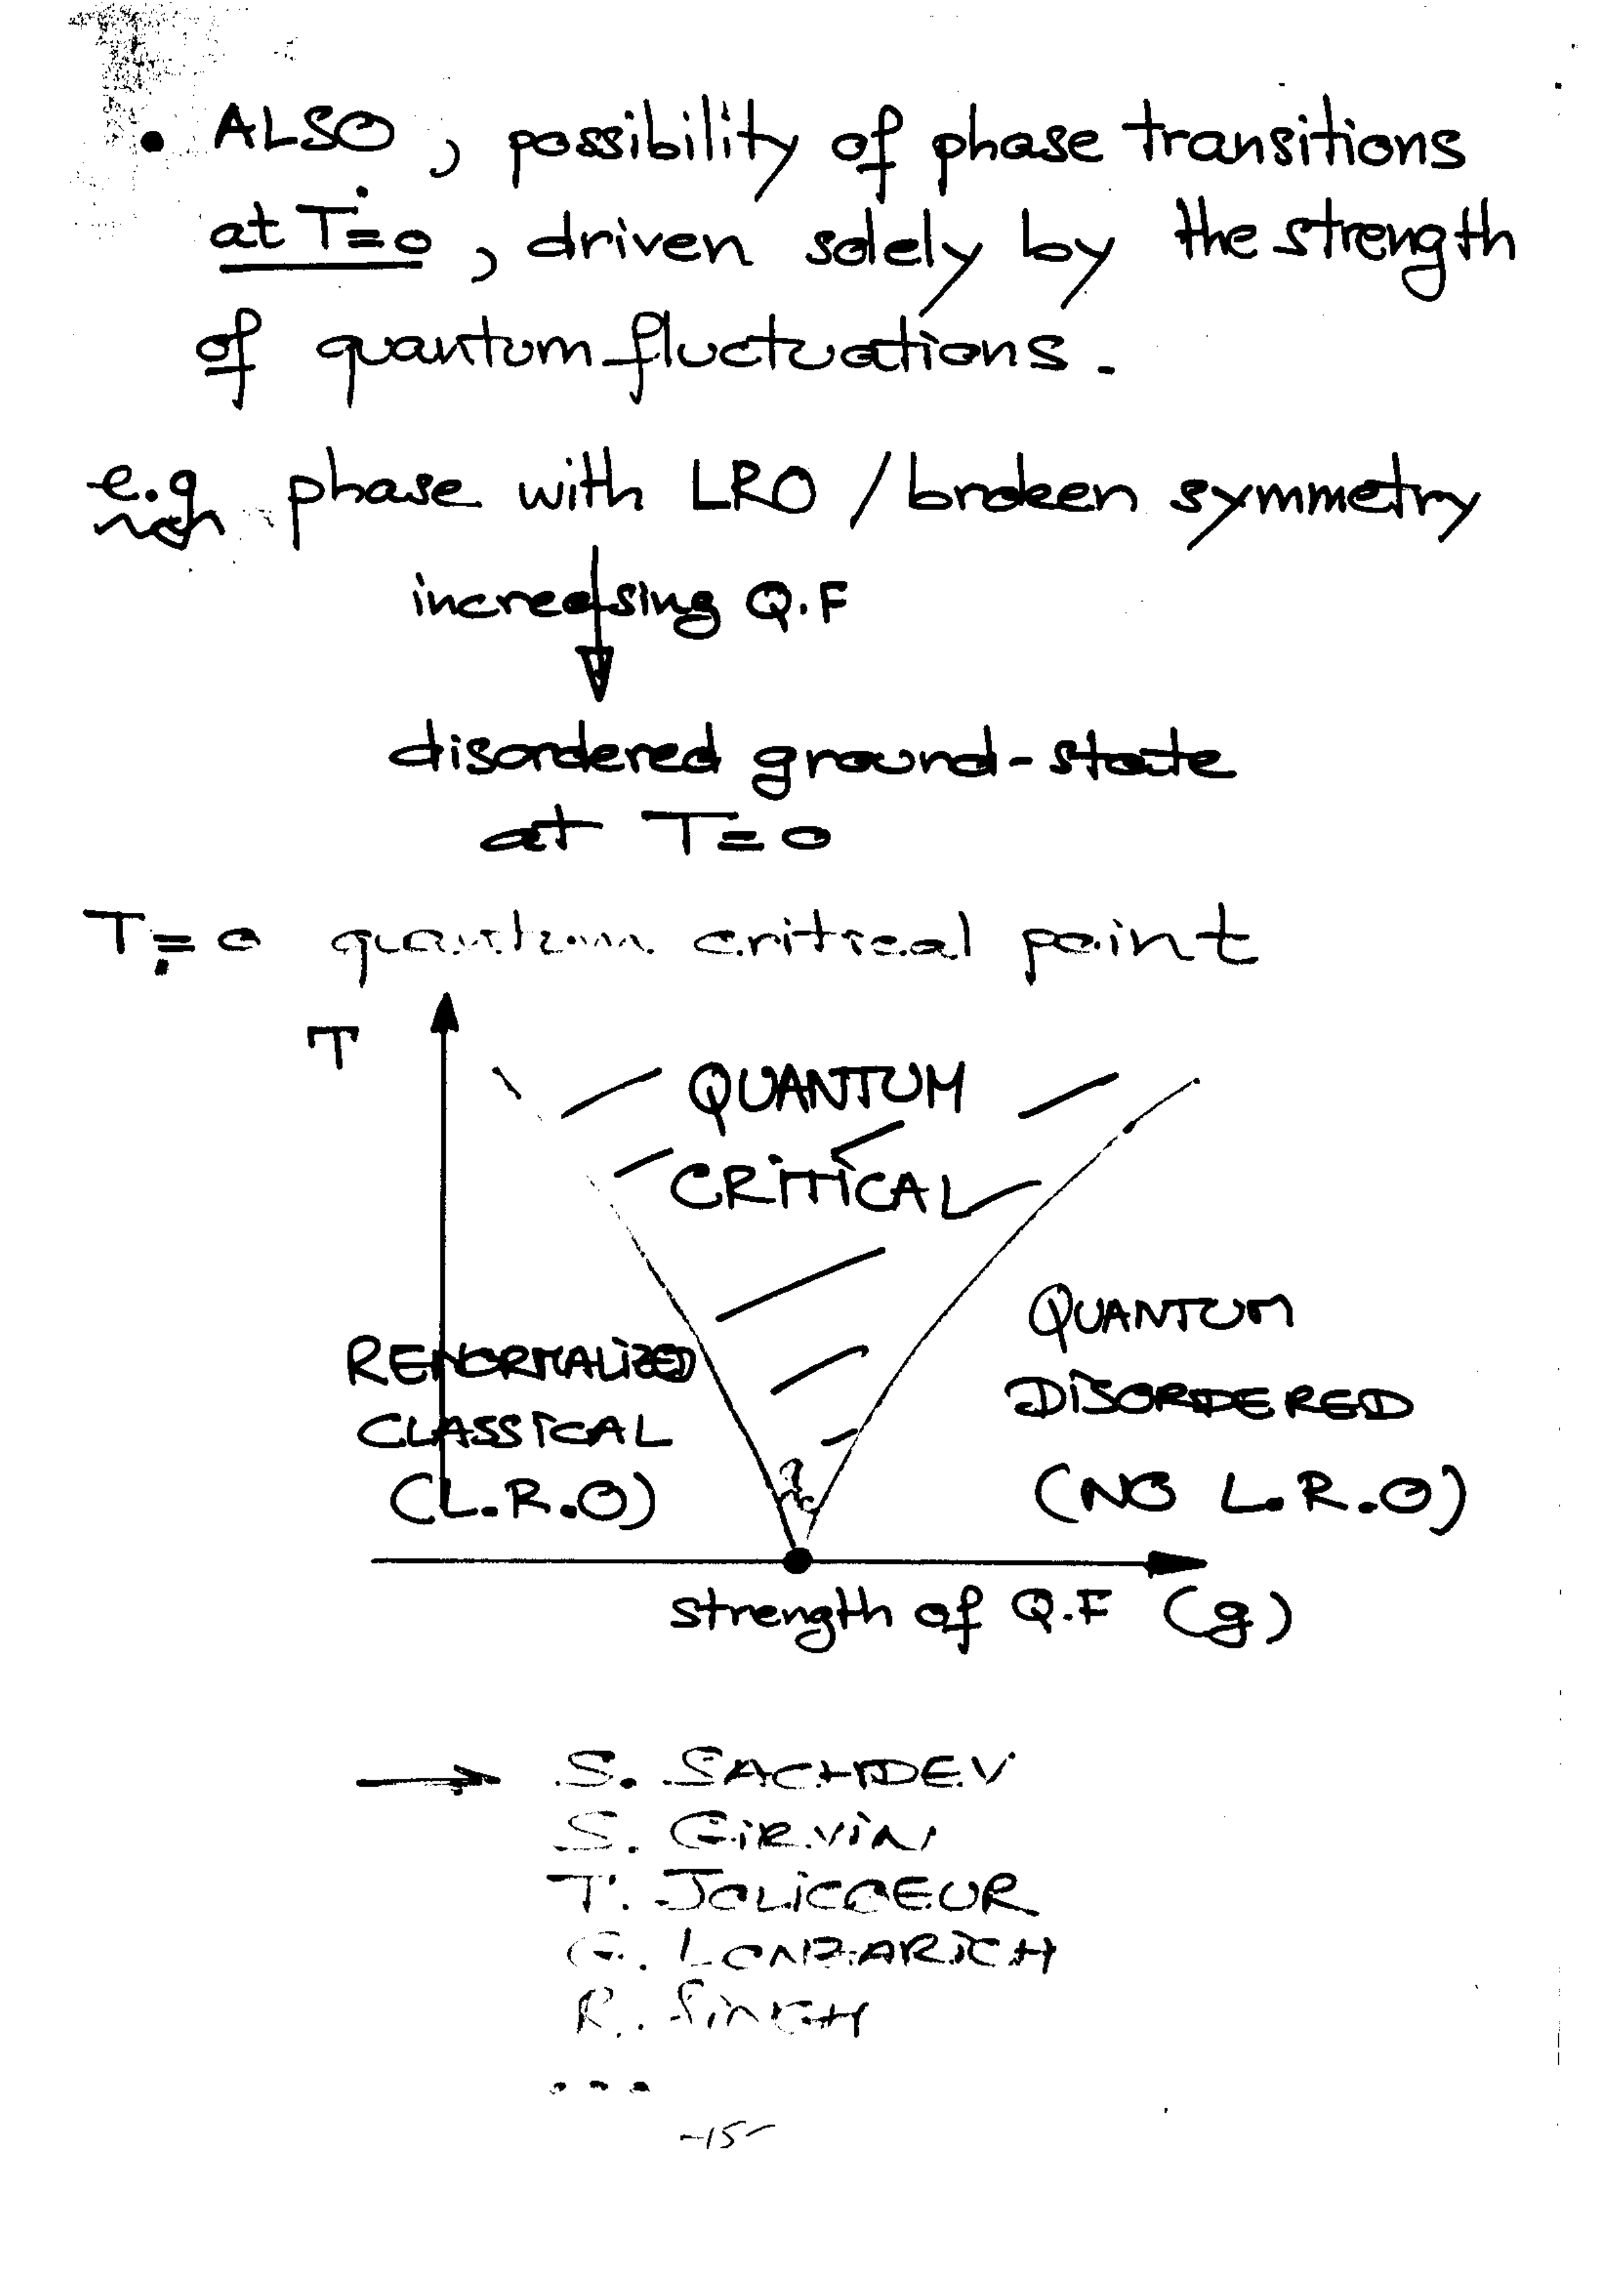 • ALSO, possibility of phase transitions
at T=0, driven solely by the strength
of quantum fluctuations.
e.g. phase with LRO / broken symmetry
increasing Q.F
disordered ground-state
at T=0
T=0 quantum critical point
T
QUANTUM
CRITICAL
QUANTUM
DISORDERED
(NO L.R.O)
RENORMALIZED
CLASSICAL
(L.R.O)
strength of Q.F (g)
→ S. SACHDEV
S. GIRVIN
T. JOLICOEUR
G. LONZARICH
R. SINGH
...
-15-